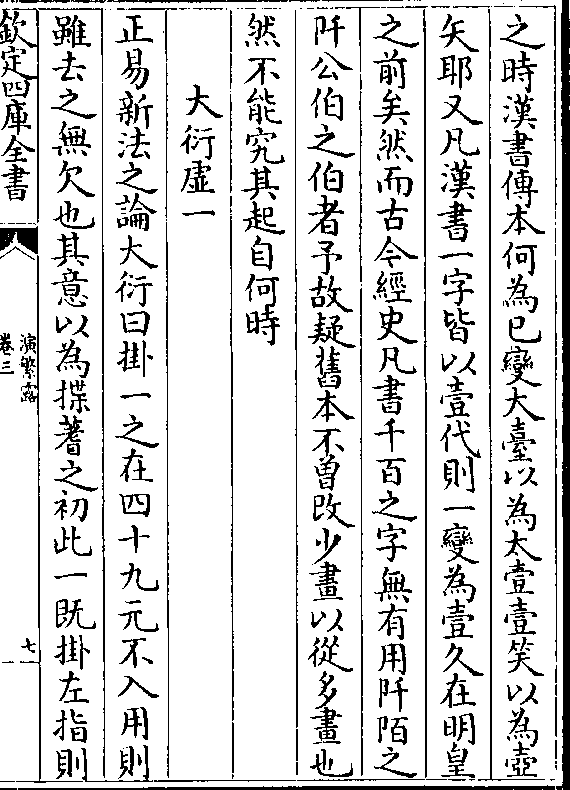 之時漢書傳本何為已變大臺以為太壹壹笑以為壺
矢耶又凡漢書一字皆以壹代則一變為壹久在明皇
之前矣然而古今經史凡書千百之字無有用阡陌之
阡公伯之伯者予故疑舊本不曾改少畫以從多畫也
然不能究其起自何時
大衍虛一
正易新法之論大衍曰掛一之在四十九元不入用則
雖去之無欠也其意以為揲蓍之初此一既掛左指則
欽定四庫全書
演繁露
卷三
七